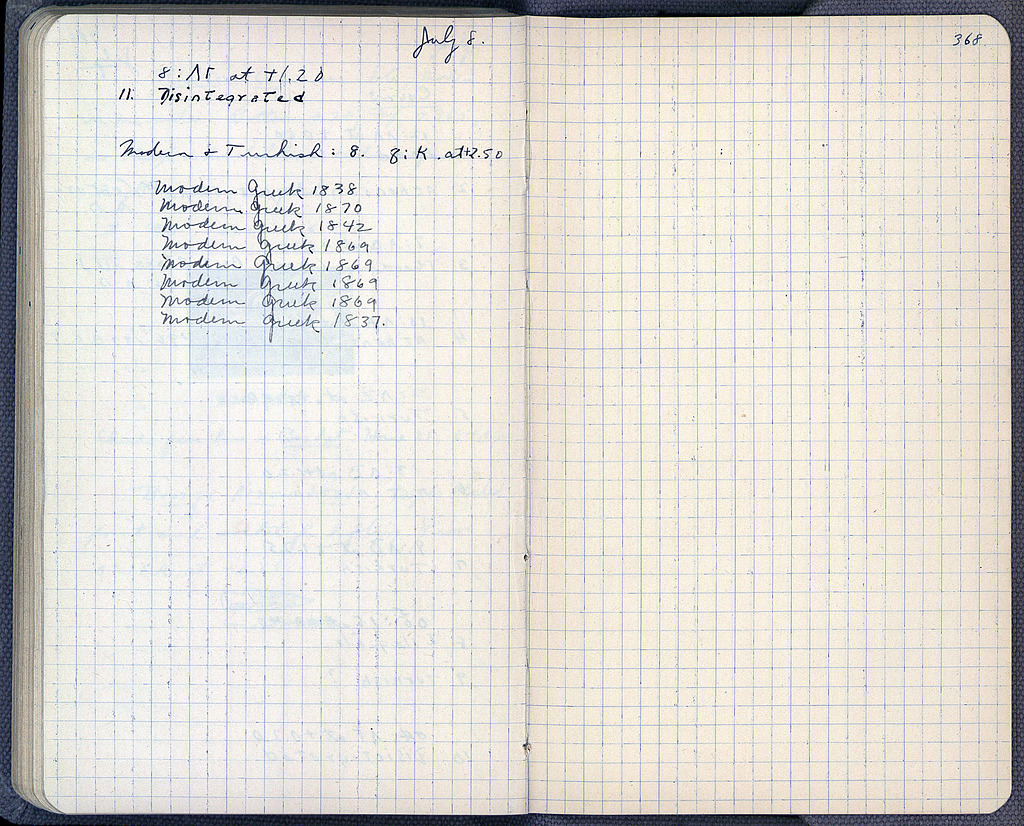 July 8.
368
8:ΛΓ at +1.20
11. Disintegrated
Modern & Turkish: 8. 8:K. at +2.50
Modern Greek 1838
Modern Greek 1870
Modern Greek 1842
Modern Greek 1869
Modern Greek 1869
Modern Greek 1869
Modern Greek 1869
Modern Greek 1837.